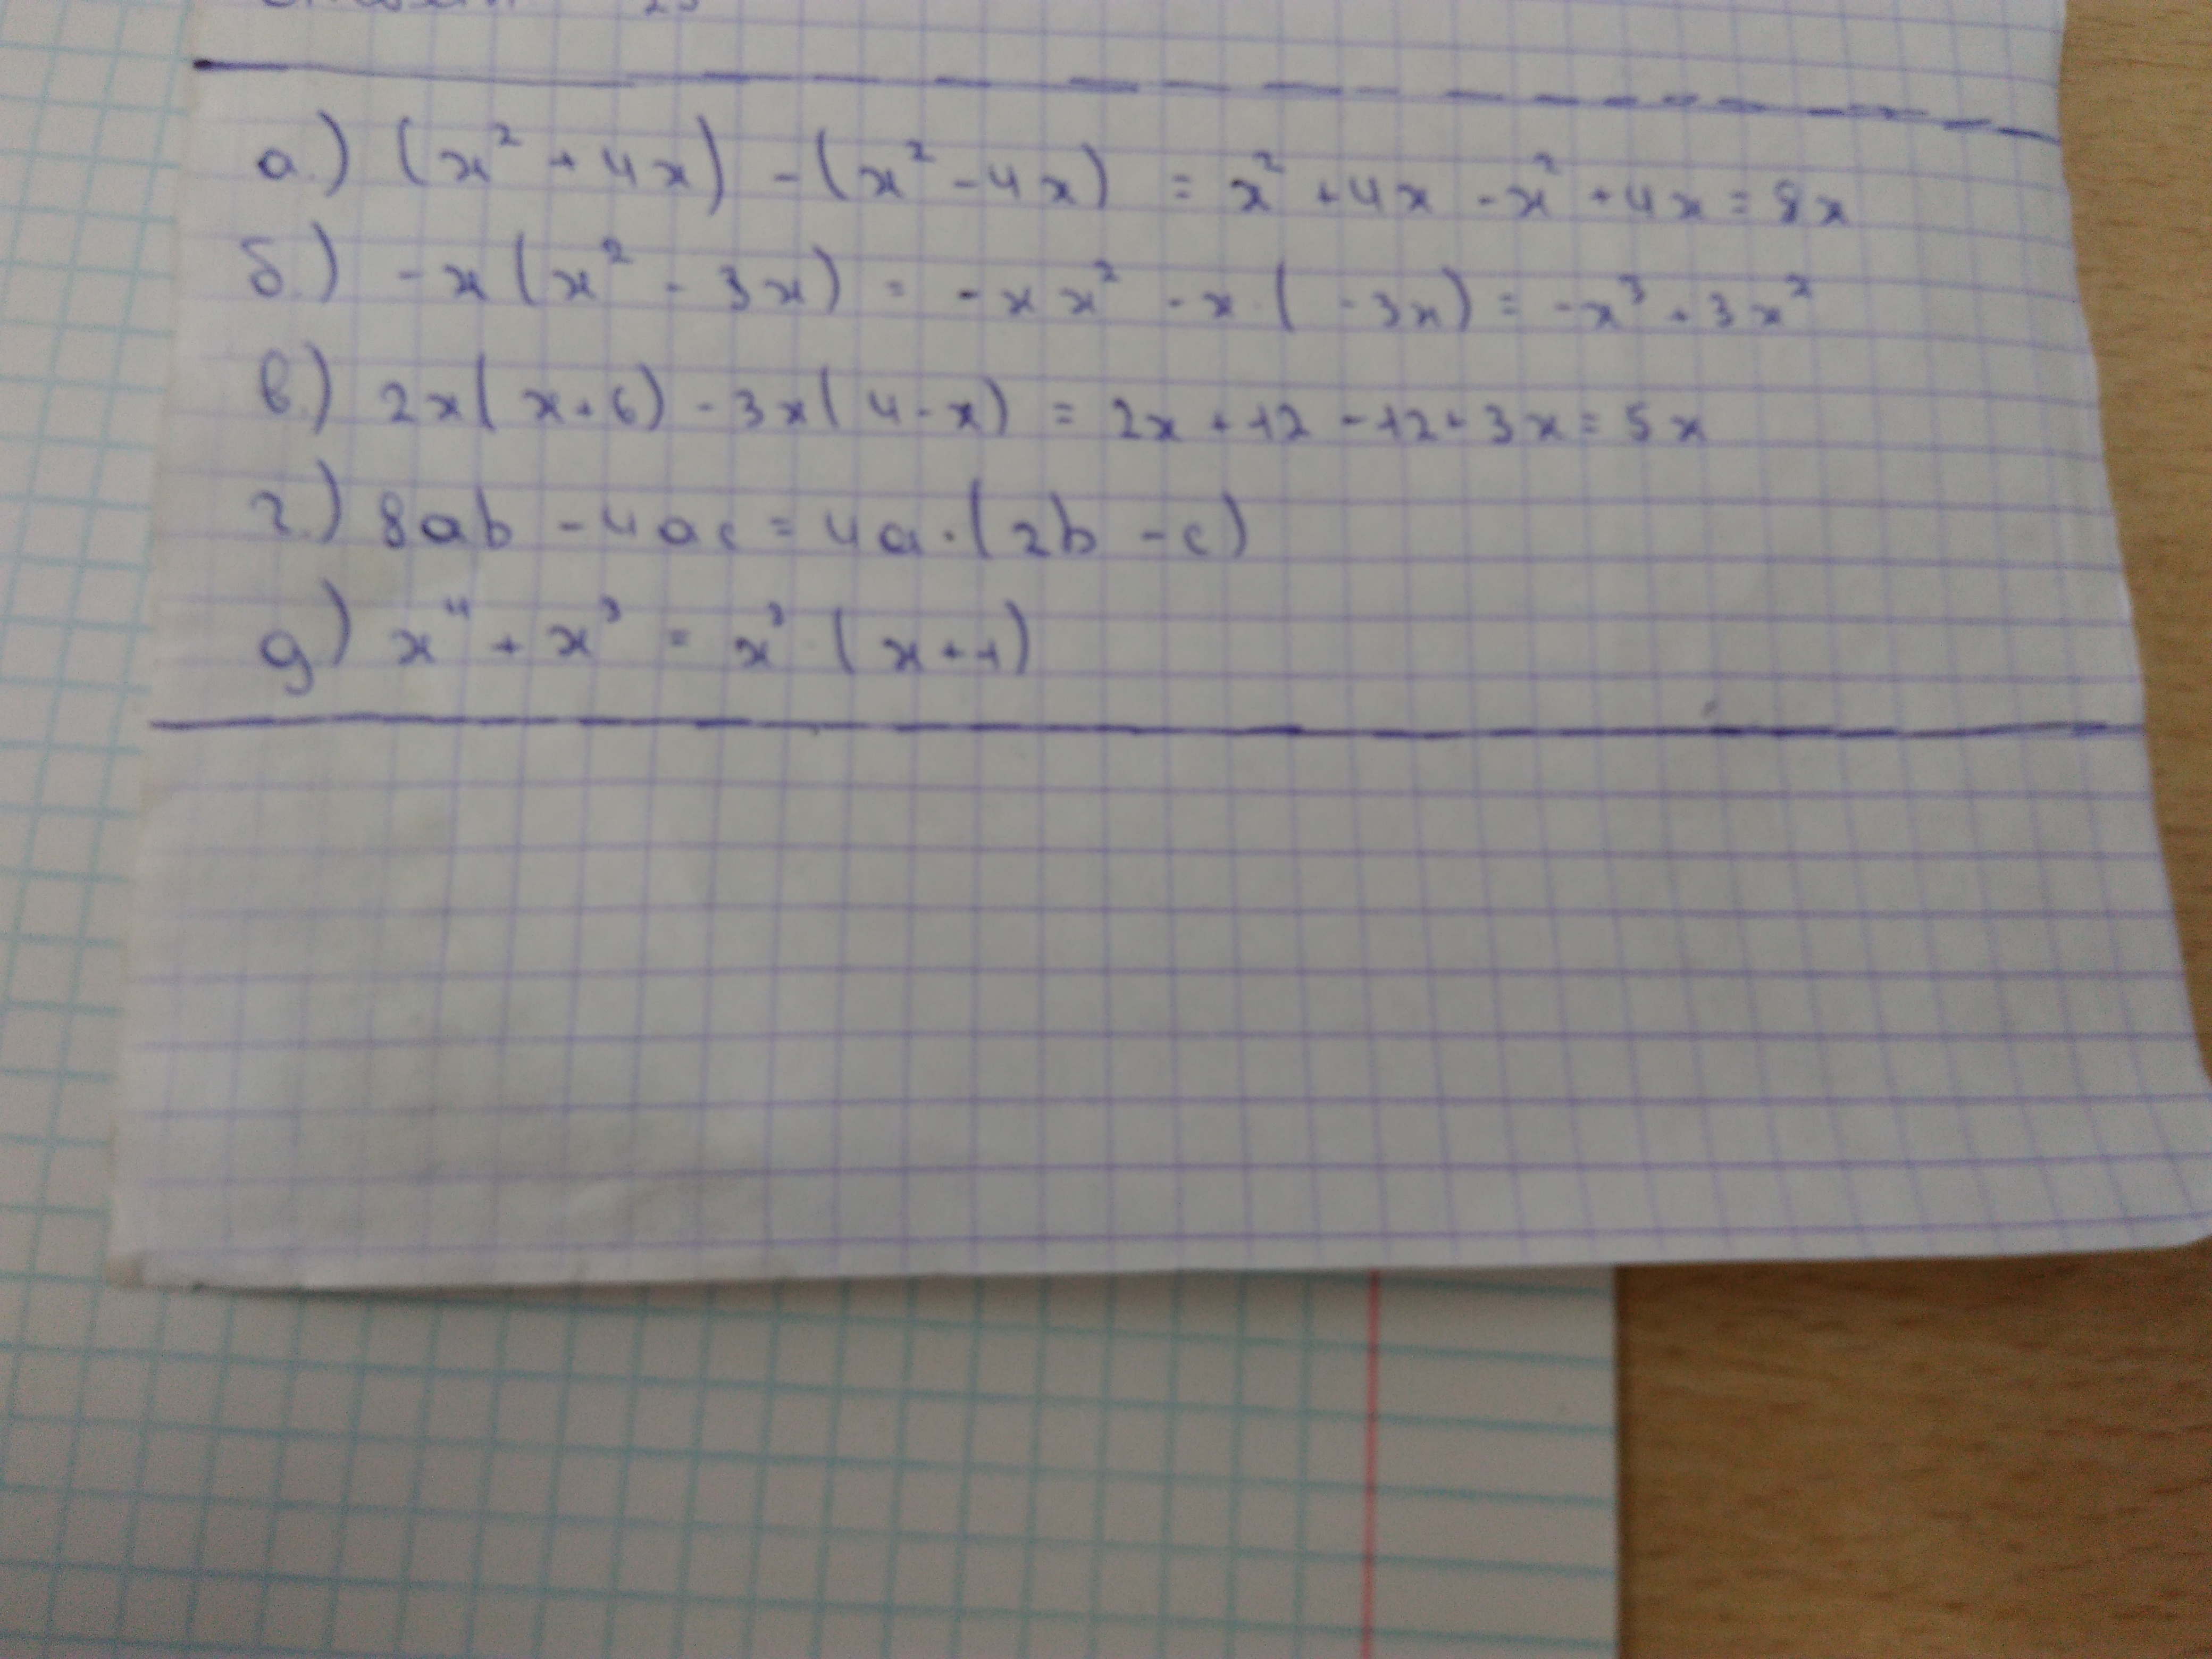 а.) (x² + 4x) - (x² - 4x) = x² + 4x - x² + 4x = 8x
б.) -x(x² - 3x) = -x x² - x·( -3x) = -x³ + 3x²
в.) 2x(x+6) - 3x(4-x) = 2x + 12 - 12 + 3x = 5x
г.) 8ab - 4ac = 4a·(2b - c)
д) x⁴ + x³ = x³·(x+1)